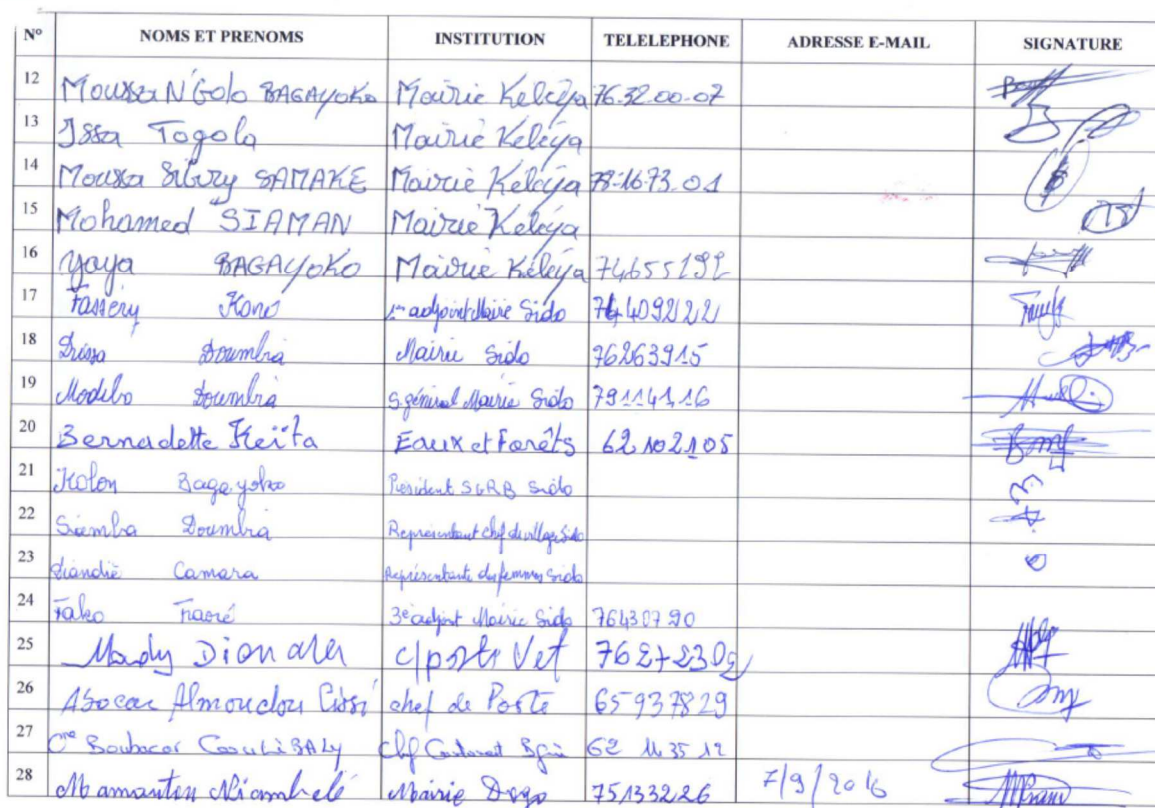 N° NOMS ET PRENOMS INSTITUTION TELELEPHONE ADRESSE E-MAIL SIGNATURE
12 Moussa N'Golo BAGAYOKO Mairie Keleya 76.32.00.07
13 Issa Togola Mairie Keleya
14 Moussa Sibiry SAMAKE Mairie Keleya 78-16-73.01
15 Mohamed SIAMAN Mairie Keleya
16 Yaya BAGAYOKO Mairie Kéléya 74655192
17 Fassery Koné 1er adjoint Maire Sido 74409222
18 Drissa Doumbia Mairie Sido 76263915
19 Modibo Doumbia S.général Mairie Sido 79114116
20 Bernadette Keïta Eaux et Forêts 62102105
21 Kolon Bagayoko Président Sido
22 Siamba Doumbia Représentant chef de village Sido
23 Camara Représentante des femmes Sido
24 Fako Traoré 3e adjoint Mairie Sido 76430790
25 Mady c/poste Vet
26 Almoudou Cissé chef de Poste 65937829
27 Boubacar COULIBALY 62 11 35 12
28 Mamantou Niambelé Mairie Dogo 75133226 7/9/2016